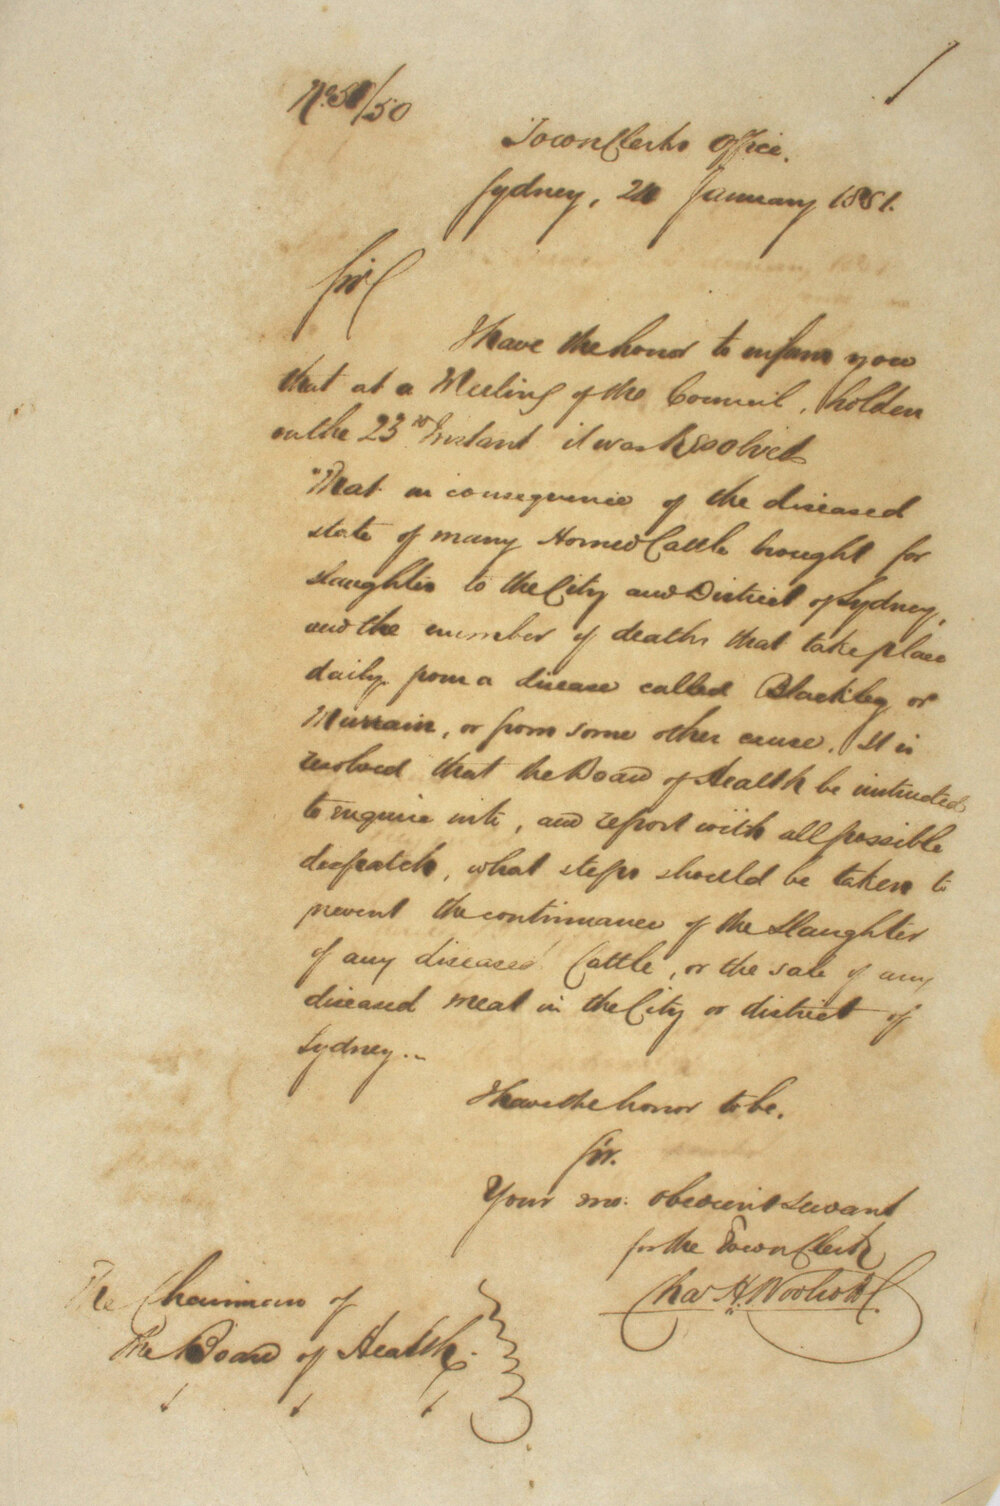 No 51/50
Town Clerks Office.
Sydney, 24 January 1851.
Sir
I have the honor to inform you
that at a Meeting of the Council, holden
on the 23rd Instant it was Resolved
"That in consequence of the diseased
state of many Horned Cattle brought for
slaughter to the City and District of Sydney,
and the number of deaths that take place
daily from a disease called Blackleg or
Murrain, or from some other cause. It is
resolved that the Board of Health be instructed
to enquire into, and report with all possible
despatch, what steps should be taken to
prevent the continuance of the Slaughter
of any diseased Cattle, or the sale of any
diseased meat in the City or district of
Sydney..
I have the honor to be.
Sir.
Your mo: obedient servant
for the Town Clerk
Chas H. Woolcott
The Chairman of
The Board of Health.